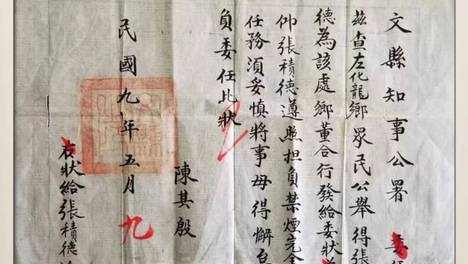 文縣知事公署
茲查左化龍鄉眾民公舉得張
德為該處鄉董合行發給委狀
仰張積德遵照担負禁煙完全
任務須妥慎將事毋得懈怠
負委任此狀
陳其殷
民國九年五月九
右狀給張積德